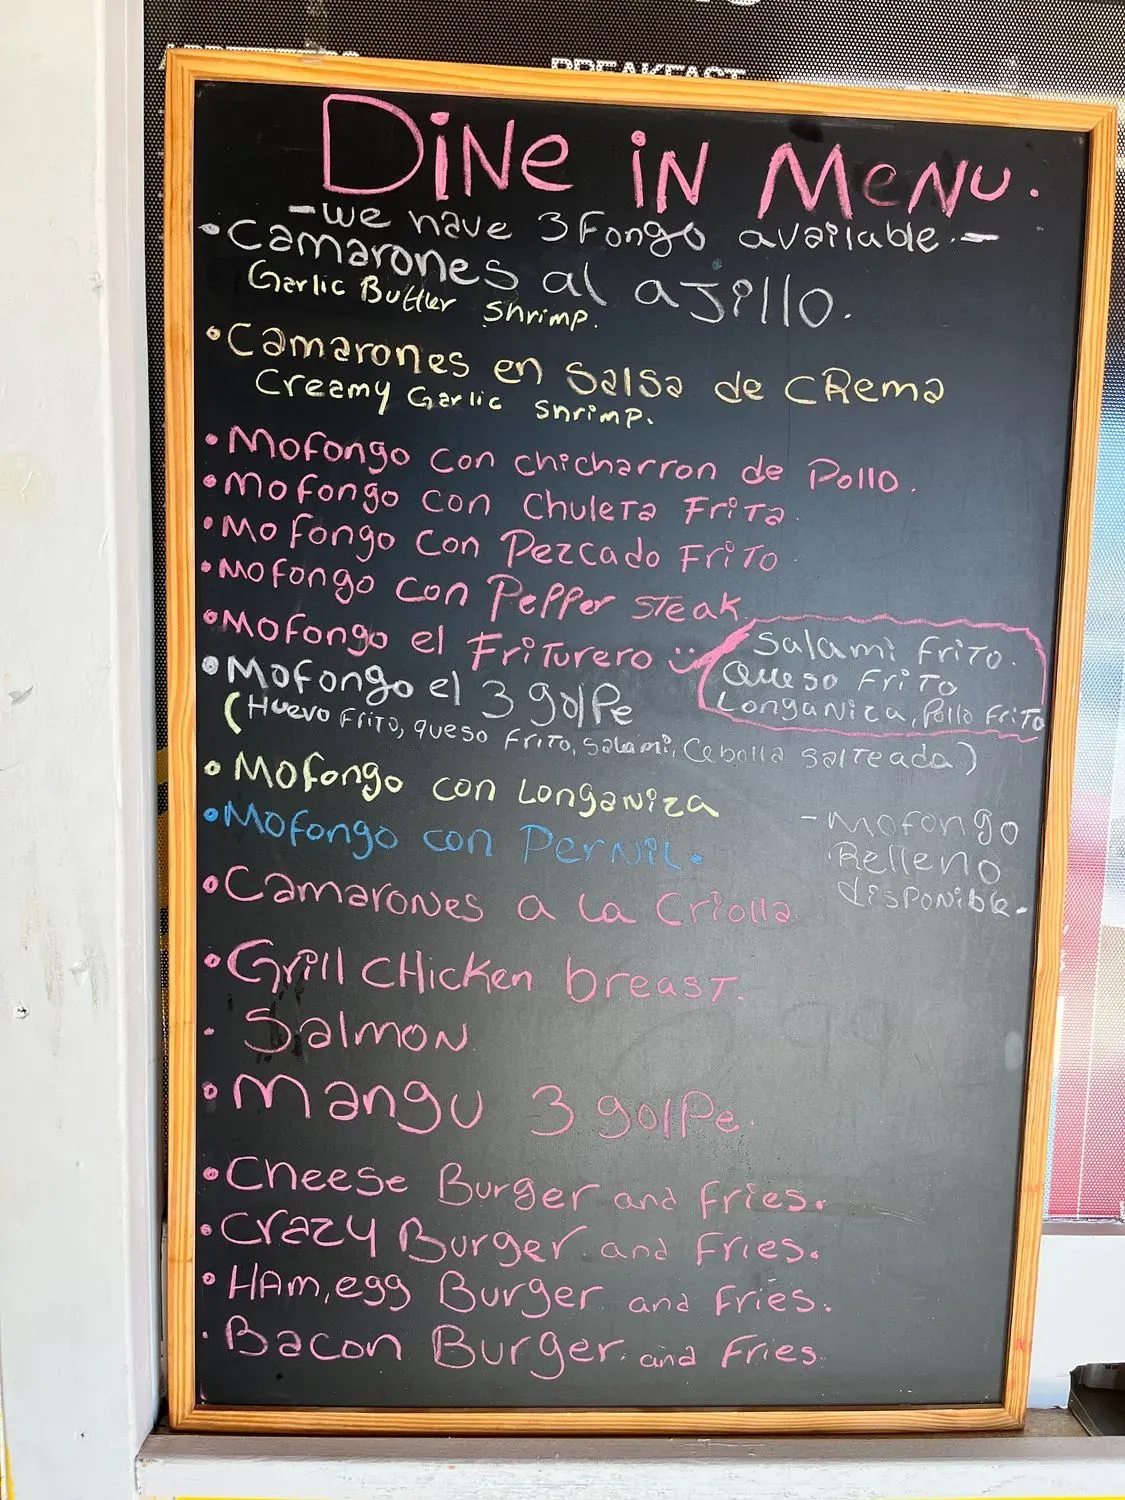 BREAKFAST
DINE IN MENU.
-we have 3Fongo available.-
• Camarones al ajillo.
Garlic Butter shrimp.
• Camarones en salsa de CRema
Creamy Garlic shrimp.
• Mofongo con chicharron de Pollo.
• Mofongo con Chuleta Frita.
• Mofongo con Pezcado Frito
• Mofongo con Pepper steak.
• Mofongo el Friturero
Salami frito.
Queso Frito
Longaniza, Pollo Frito
• Mofongo el 3 golpe
(Huevo frito, queso frito, salami, Cebolla salteada)
• Mofongo con Longaniza
• Mofongo con Pernil.
-Mofongo
Relleno
disponible.-
• Camarones a la Criolla.
• Grill CHicken breast.
• Salmon
• Mangu 3 golpe.
• Cheese Burger and fries.
• Crazy Burger and Fries.
• HAm, egg Burger and Fries.
• Bacon Burger. and Fries.